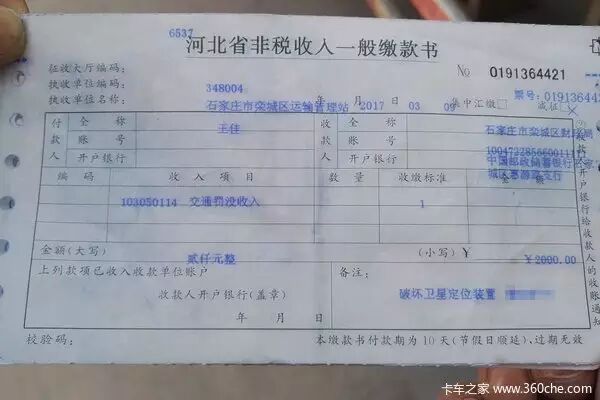 6537
河北省非税收入一般缴款书
征收大厅编码:
No 0191364421
执收单位编码: 348004
票号: 0191364421
执收单位名称: 石家庄市栾城区运输管理站 2017年 03月 09日 集中汇缴□ 减征□
付款人 全称 王佳 收款人 全称 石家庄市栾城区财政局
账号 账号
开户银行 开户银行 中国邮政储蓄银行
城区惠源路支行
编码 收入项目 数量 收缴标准 金额
103050114 交通罚没收入 1
金额(大写) 贰仟元整 (小写)¥ ¥2000.00
上列款项已收入收款单位账户 备注:
收款人开户银行(盖章) 破坏卫星定位装置
年 月 日
校验码: 本缴款书付款期为10天(节假日顺延),过期无效
开户银行给收款人的收账通知
卡车之家 www.360che.com